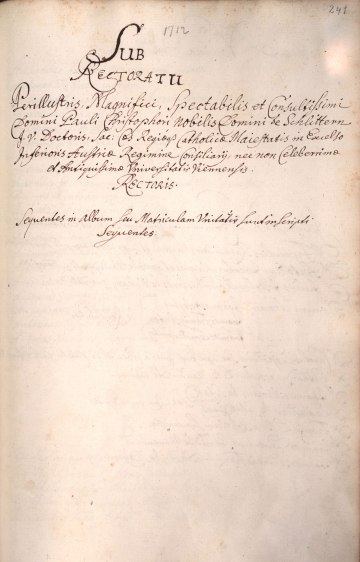 241
1712
SUB
RECTORATU
Perillustris, Magnifici, Spectabilis et Consultissimi
Domini Pauli Christophori Nobilis Domini de Schlittern
J. V. Doctoris, Sac: Cæs Regiæq Catholicæ Maiestatis in Excelso
Inferioris Austriæ Regimine Consiliarij, nec non Celeberrimæ
et Antiquissimæ Universitatis Viennensis.
RECTORIS.
Sequentes in Album seu Matriculam Vnitatis sunt inscripti
Sequentes.